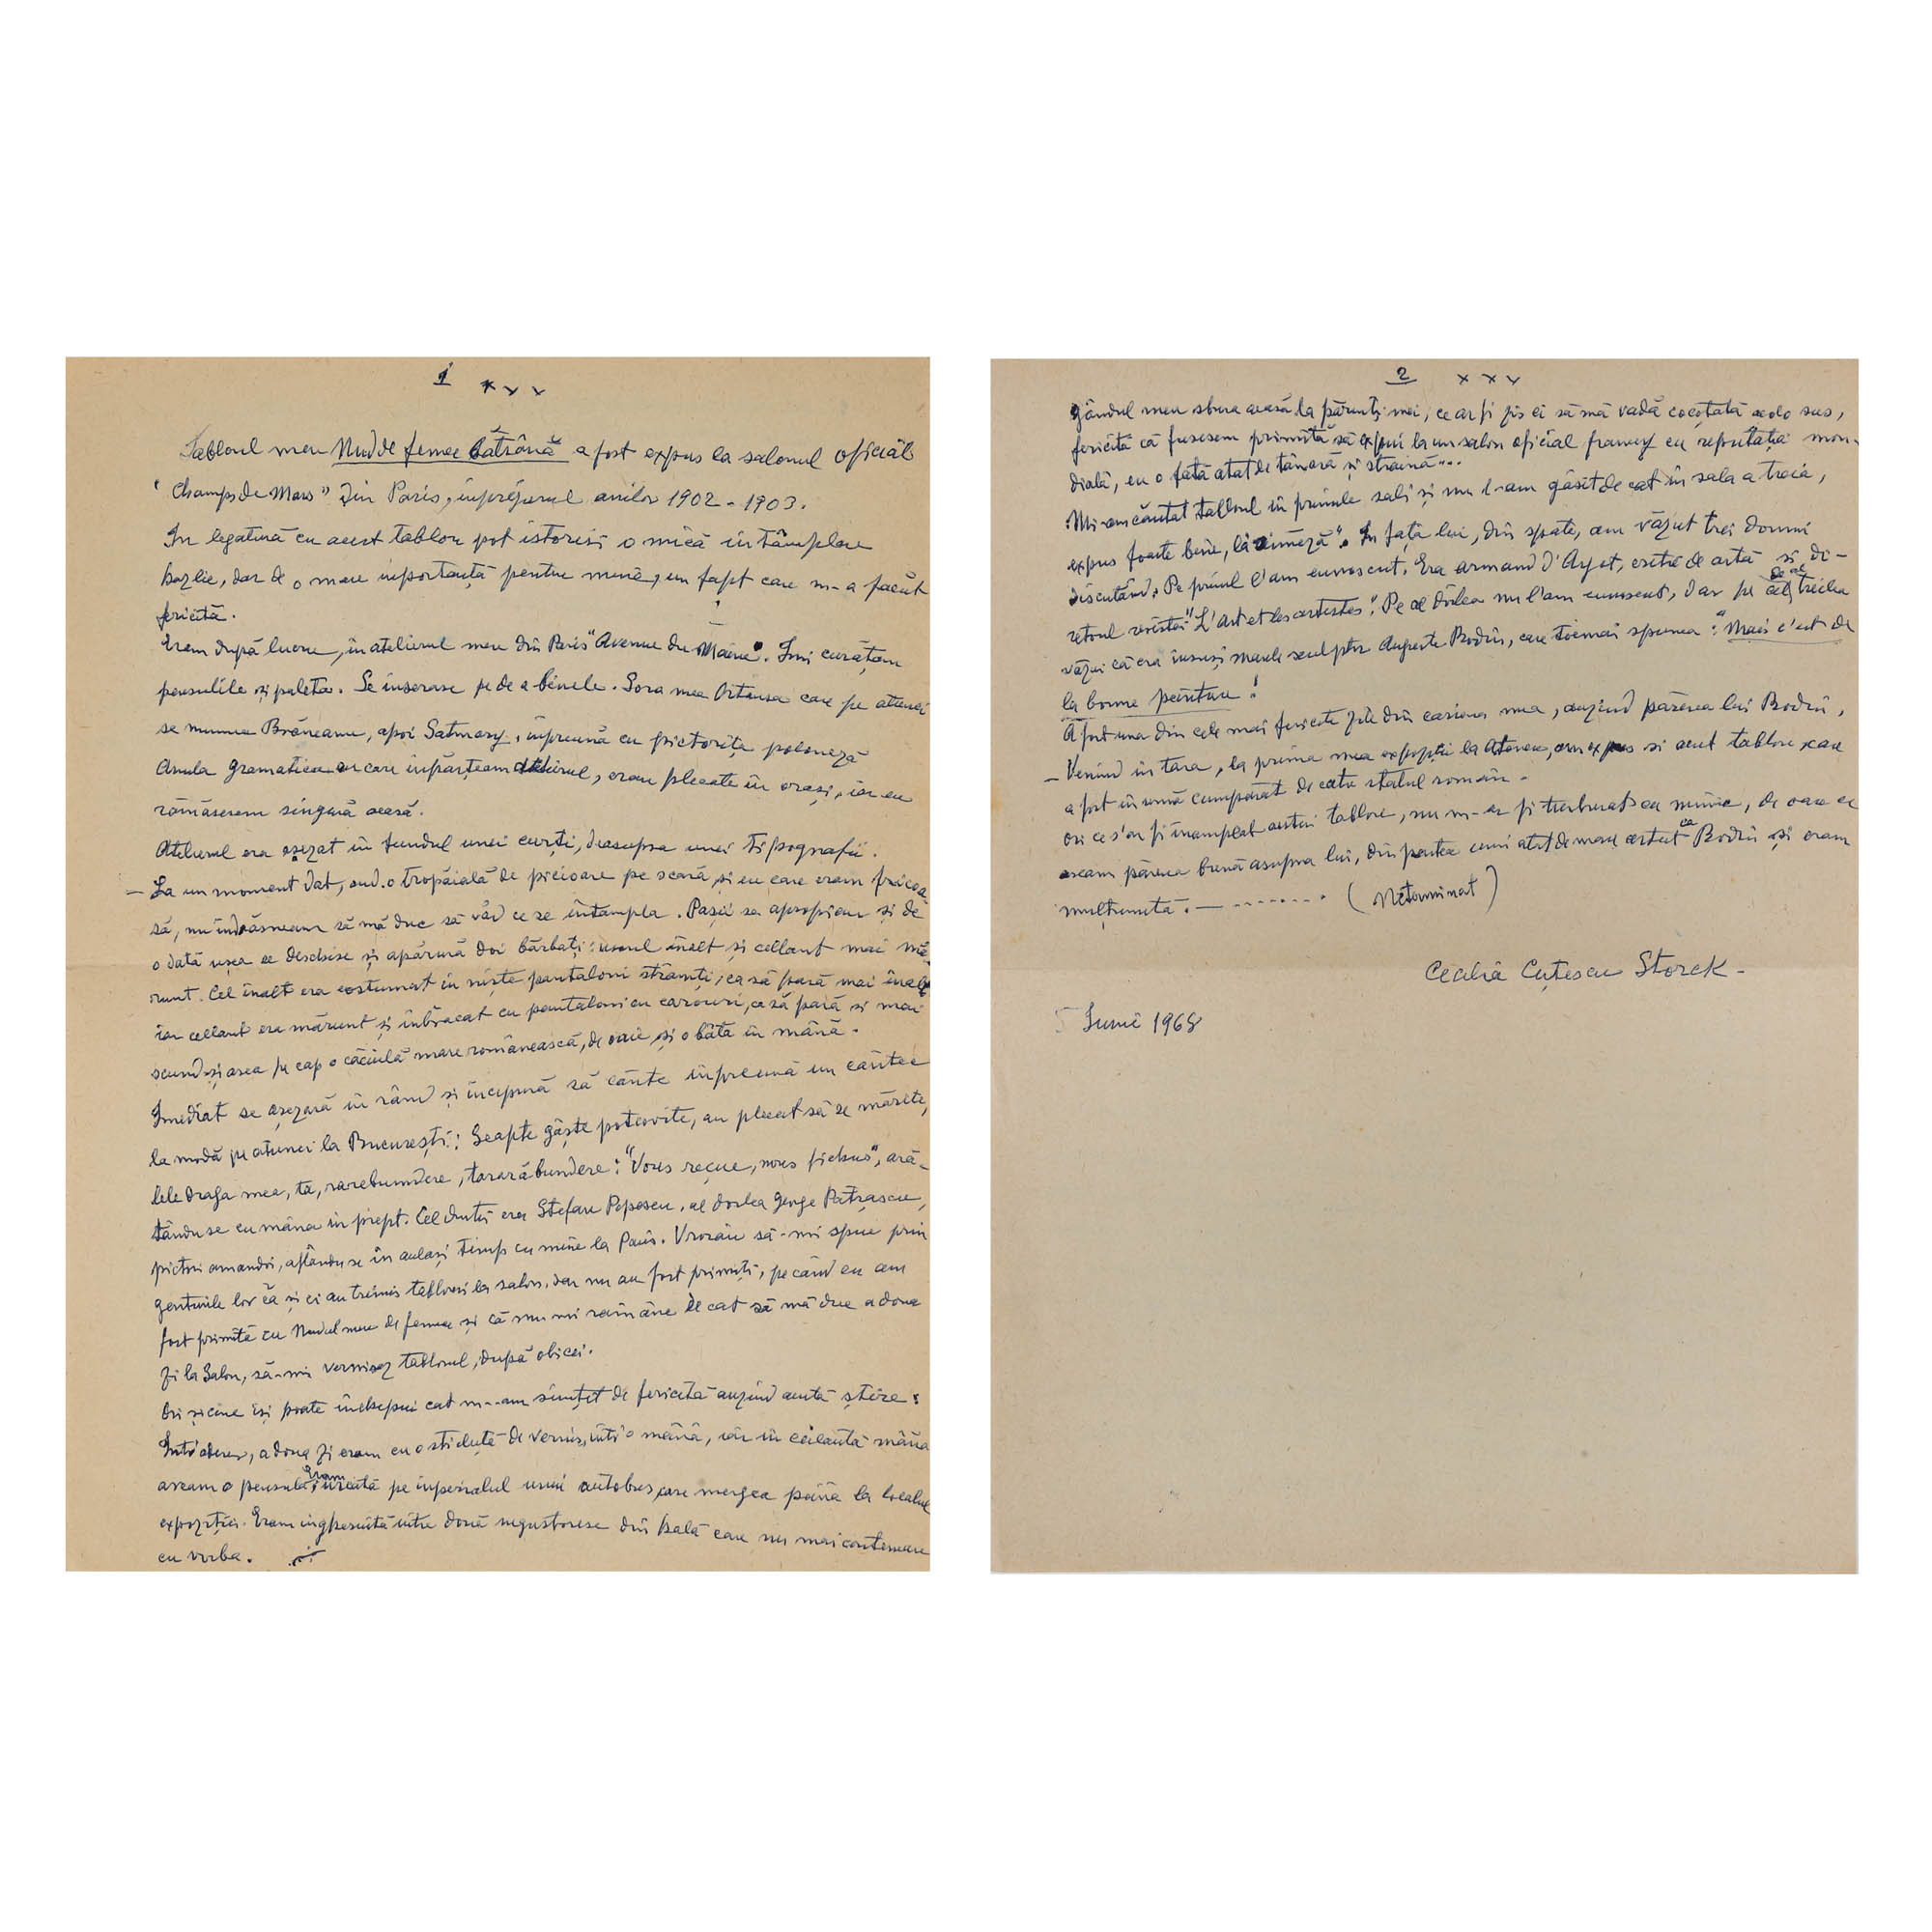 1 x x x
Tabloul meu Nud de femee bătrână a fost expus la salonul oficial
"Champs de Mars" din Paris, împrejurul anilor 1902 - 1903.
In legatură cu acest tablou pot istorisi o mică întâmplare
hazlie, dar de o mare importanță pentru mine, un fapt care m-a făcut
fericită.
Eram după lucru, in atelierul meu din Paris "Avenue du Maine". Imi curățam
pensulile și paleta. Se inserase pe de a binele. Sora mea Ortansa care pe atunci
se numea Brăneanu, apoi Satmary, împreună cu pictorița poloneză
Anula Gramatica cu care împărțeam atelierul, erau plecate în oraș, iar eu
rămăsesem singură acasă.
Atelierul era așezat în fundul unei curți, deasupra unei tipografii.
– La un moment dat, aud o tropăială de picioare pe scară, și eu care eram fricoa-
să, nu indrăsneam să mă duc să văd ce se întâmpla. Pașii se apropiau și de
o dată ușea se deschise și apărură doi bărbați: unul înalt și cellant mai mă-
runt. Cel înalt era costumat in niște pantaloni strâmți, ca să pară mai înalt
iar cellant era mărunt și înbrăcat cu pantaloni cu carouri, ca să pară si mai
scund și avea pe cap o căciulă mare românească, de oaie și o bâtă în mână.
Imediat se așezară în rând și începură să cânte împreună un cântec
la modă pe atunci la București: Seapte gâște potcovite, au plecat să se mărite,
lele draga mea, ta, rarabumdere, tararăbumdere: "Vous reçue, nous fichus", ară-
tându se cu mâna in piept. Cel dintîi era Stefan Popescu, al doilea George Patrașcu,
pictori amandoi, aflându se în acelaș timp cu mine la Paris. Vroiau să-mi spue prin
gesturile lor că și ei au trimis tablouri la salon, dar nu au fost primiți, pe când eu am
fost primită cu Nudul meu de femee și că nu-mi ramâne de cat să mă duc a doua
zi la Salon, să-mi vernisez tabloul, după obicei.
Ori și cine își poate închipui cat m-am simțit de fericită auzind acestă știre:
Intr'adever, a doua zi eram cu o sticluță de vernis, intr'o mână, iar în ceilantă mâna
aveam o pensulă, eram urcată pe inperialul unui autobus, care mergea până la localul
expoziției. Eram inghesuită între două negustorese din hală care nu mai conteneau
cu vorba.
2 x x x
gândul meu sbura acasă la părinți mei, ce ar fi zis ei să mă vadă cocoțată acolo sus,
fericită că fusesem primită să expui la un salon oficial francez cu reputație mon-
dială, eu o fată atat de tânără și straină...
Mi-am căutat tabloul in primele sali și nu l-am găsit de cat în sala a treia,
expus foarte bine, la "cimeză". In fața lui, din spate, am văzut trei domni
discutând. Pe primul l'am cunoscut. Era Armand D'Ayot, critic de artă și di-
retorul revistei "L'Art et les artistes". Pe al doilea nu l'am cunoscut, dar pe de al treilea
văzui că era însuși marele sculptor Auguste Rodin, care tocmai spunea: "Mais c'est de
la bonne peinture!
A fost una din cele mai fericite zile din cariera mea, auzind părerea lui Rodin.
– Venind in tara, la prima mea expoziție la Ateneu, am expus si acest tablou, care
a fost în urmă cumpărat de catre statul român.
Ori ce s'ar fi inamplat acestui tablou, nu m-ar fi turburat cu nimic, de oare ce
aveam părerea bună asupra lui, din partea unui atat de mare artist ca Rodin și eram
mulțumită. – - - - - - - - (Neterminat)
Cecilia Cuțescu Storck -
5 Iunie 1968